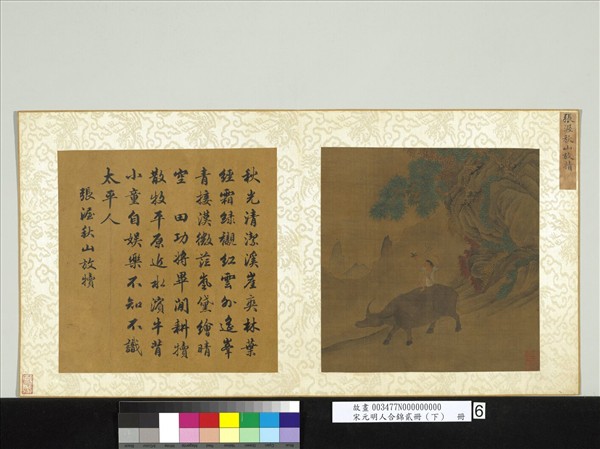 張渥秋山放犢
秋光清潔溪崖爽林葉
經霜綠襯紅雲外遙峯
青接漢微茫嵐黛繪晴
空 田功將畢閒耕犢
散牧平原近水濱牛背
小童自娛樂不知不識
太平人
張渥秋山放犢
故畫 003477N000000000
宋元明人合錦貳冊(下) 冊
6